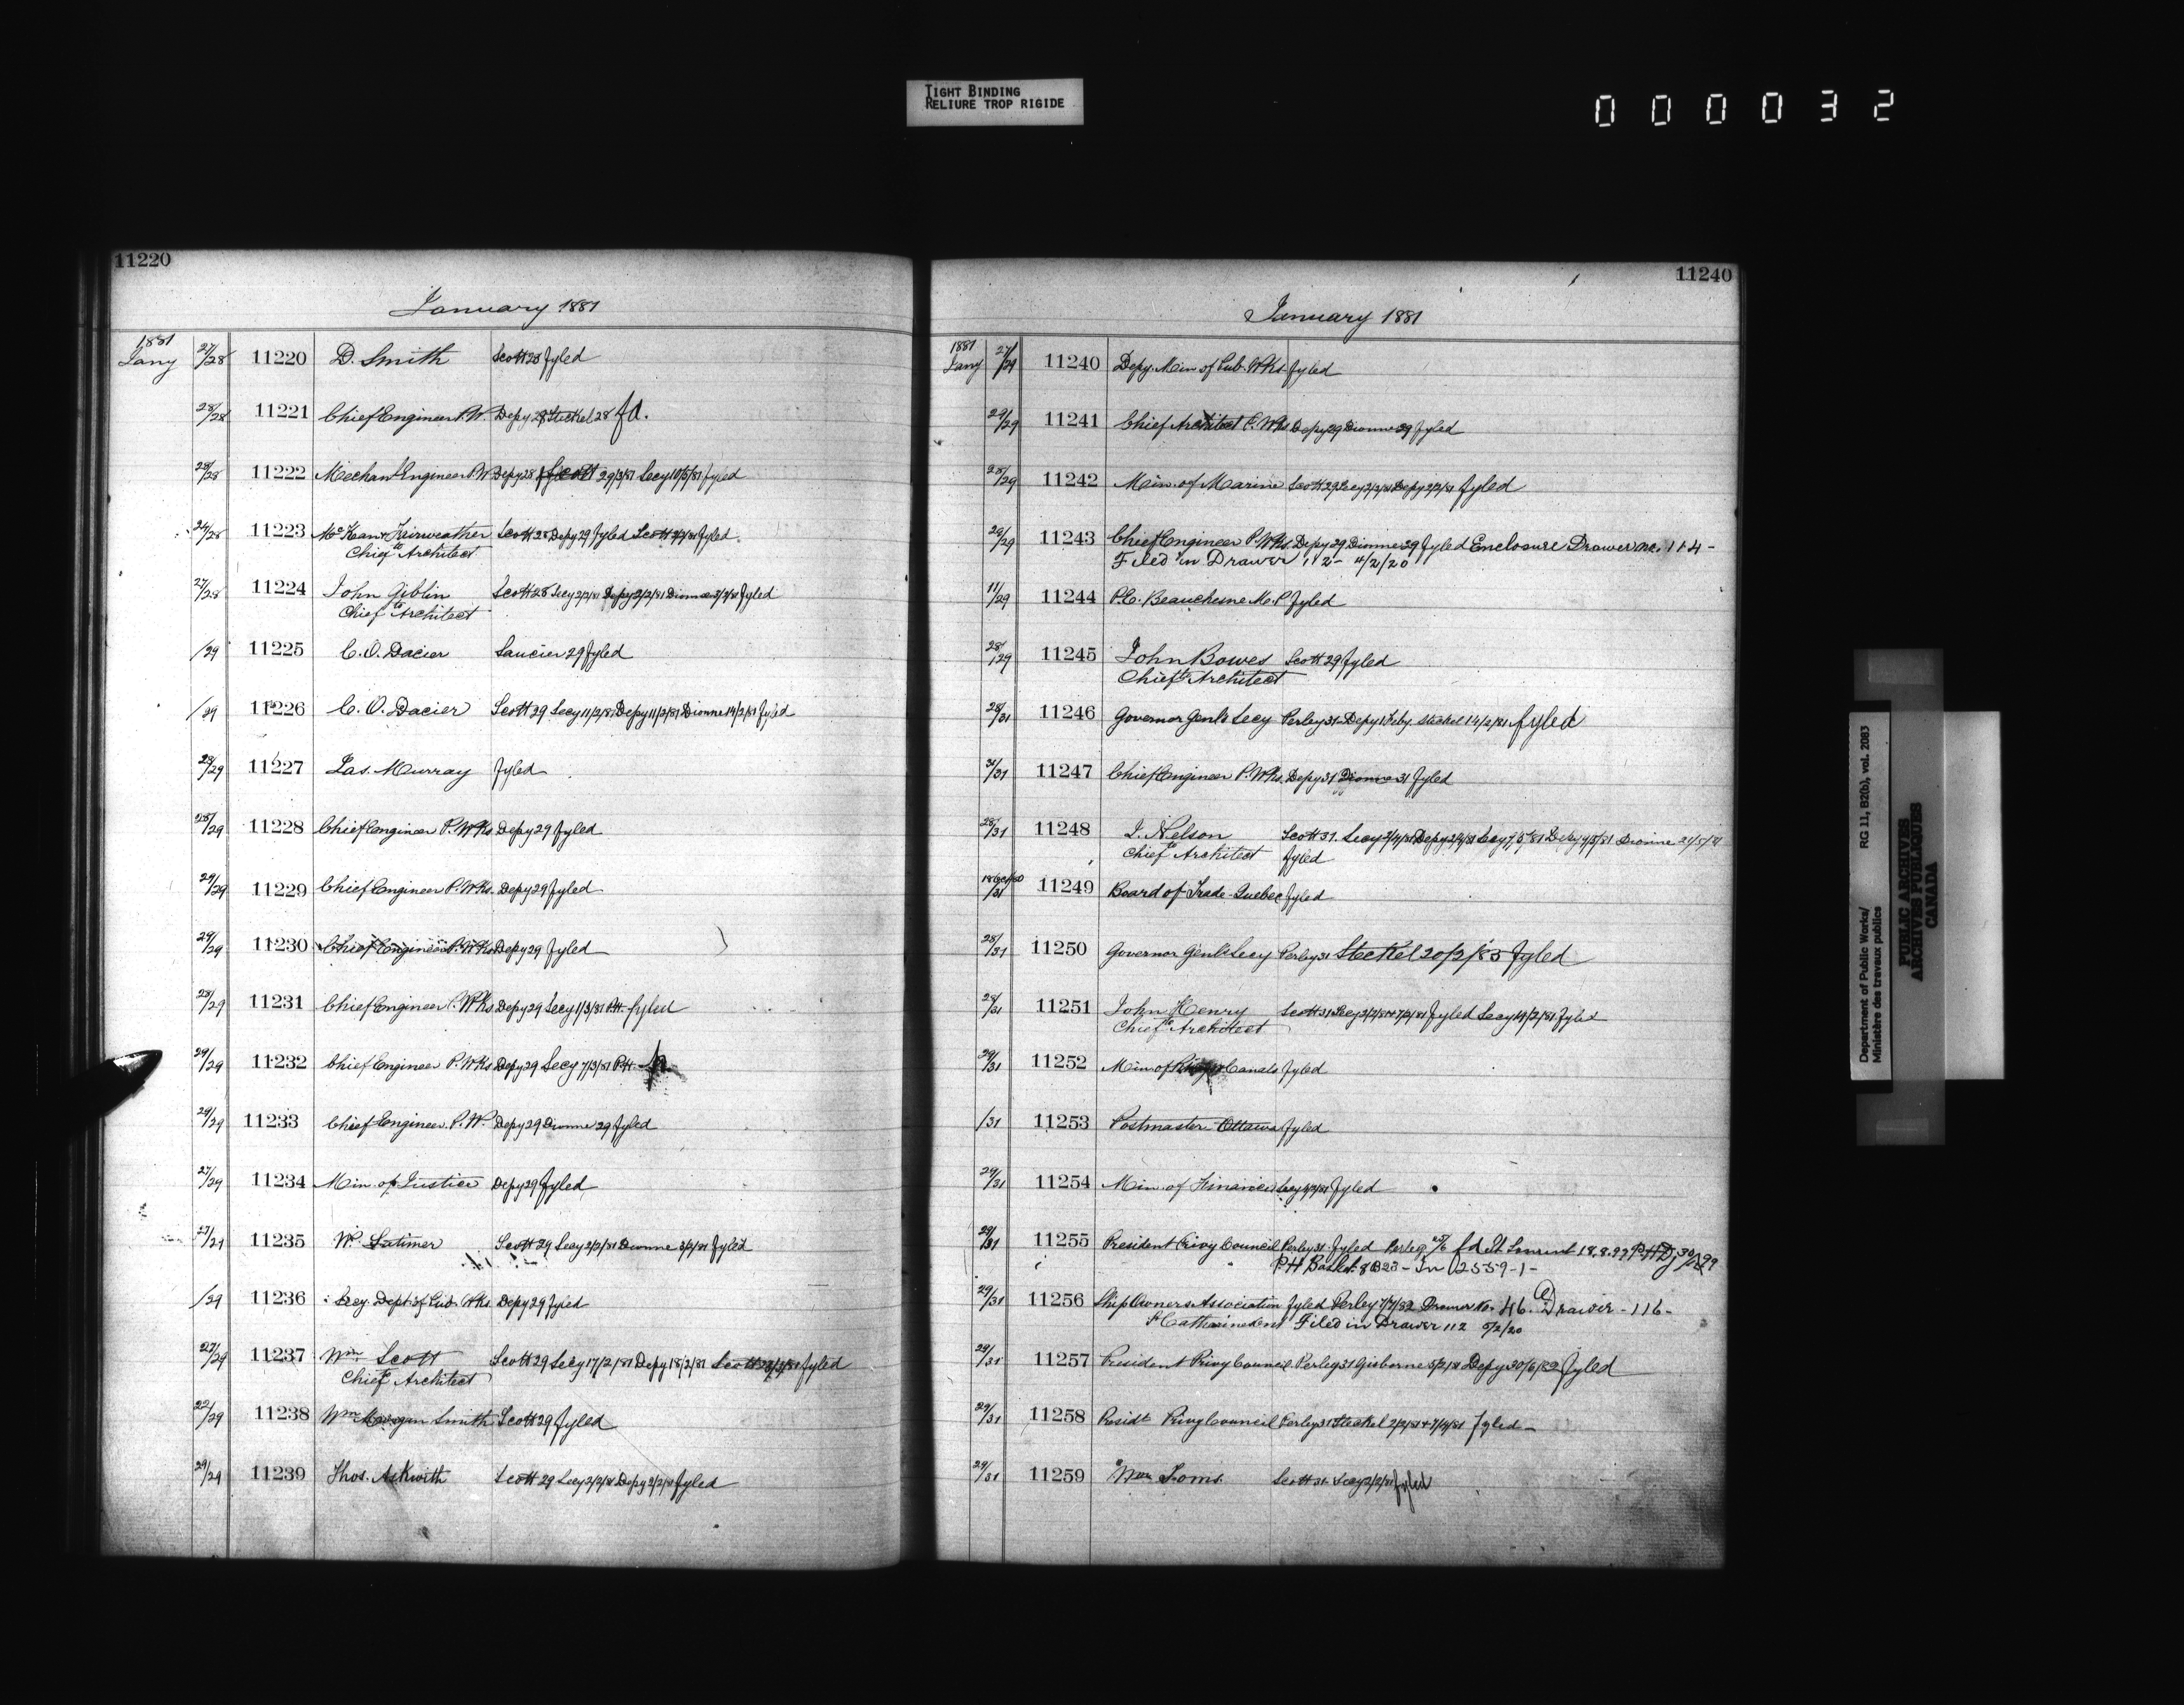 TIGHT BINDING
RELIURE TROP RIGIDE
000032
11220
January 1881
1881
Jany 27/28 11220 D. Smith Scott 28 fyled
28/28 11221 Chief Engineer P.W. Depy 28 Steckel 28 fd.
28/28 11222 Mechanl Engineer P.W Depy 28 Scott 29/3/81 Secy 10/5/81 fyled
26/28 11223 McKean & Fairweather Scott 28 Depy 29 fyled Scott fyled
Chief Architect
27/28 11224 John Giblin Scott 28 Secy 2/2/81 Depy 2/2/81 Dionne 3/2/81 fyled
Chief Architect
/29 11225 C.O. Dacier Saucier 29 fyled
/29 11226 C.O. Dacier Scott 29 Secy 11/2/81 Depy 11/2/81 Dionne 14/2/81 fyled
28/29 11227 Jas. Murray fyled
28/29 11228 Chief Engineer P.Wks. Depy 29 fyled
29/29 11229 Chief Engineer P.Wks. Depy 29 fyled
29/29 11230 Chief Engineer P.Wks Depy 29 fyled
28/29 11231 Chief Engineer P.Wks Depy 29 Secy 1/3/81 P.H. fyled
29/29 11232 Chief Engineer P.Wks Depy 29 Secy 7/3/81 P.H.
29/29 11233 Chief Engineer P.W. Depy 29 Dionne 29 fyled
27/29 11234 Min. of Justice Depy 29 fyled
27/29 11235 W. Latimer Scott 29 Secy 2/2/81 Dionne 3/2/81 fyled
/29 11236 Secy. Dept. of Pub. Wks. Depy 29 fyled
27/29 11237 Wm Scott Scott 29 Secy 17/2/81 Depy 18/2/81 Scott fyled
Chief Architect
22/29 11238 Wm Morgan Smith Scott 29 fyled
29/29 11239 Thos. Askwith Scott 29 Secy 2/2/81 Depy 2/2/81 fyled
11240
January 1881
1881
Jany 27/29 11240 Depy. Min of Pub. Wks. fyled
29/29 11241 Chief Architect P. Wks Depy 29 Dionne 29 fyled
28/29 11242 Min. of Marine Scott 29 Secy 2/2/81 Depy 2/2/81 fyled
29/29 11243 Chief Engineer P. Wks. Depy 29 Dionne 29 fyled Enclosure Drawer no. 114-
Filed in Drawer 112- 4/2/20
11/29 11244 P.C. Beauchesne M.P fyled
28/29 11245 John Bowes Scott 29 fyled
Chief Architect
28/31 11246 Governor Genl's Secy Perley 31 Depy 1 Feby Steckel 14/2/81 fyled
31/31 11247 Chief Engineer P. Wks. Depy 31 Dionne 31 fyled
28/31 11248 J. Nelson Scott 31. Secy Depy Secy Depy Dionne
Chief Architect fyled
/31 11249 Board of Trade Quebec fyled
28/31 11250 Governor Genl's Secy Perley 31 Steckel 20/2/83 fyled
28/31 11251 John Henry Scott 31 Secy fyled Secy 14/2/81 fyled
Chief Architect
29/31 11252 Min of Canals fyled
/31 11253 Postmaster Ottawa fyled
29/31 11254 Min. of Finance Secy fyled
29/31 11255 President Privy Council Perley 31 fyled Perley fd St Laurent 18.8.99
P.H In 2559-1-
29/31 11256 Ship Owners Association fyled Perley 7/7/82 Drawer No. 46. Drawer - 116-
St Catharines Ont Filed in Drawer 112 5/2/20
29/31 11257 President Privy Council Perley 31 Gisborne 5/2/81 Depy 30/6/82 fyled
29/31 11258 Presidt Privy Council Perley 31 Steckel fyled
29/31 11259 Wm Toms. Scott 31 Secy 2/2/81 fyled
Department of Public Works/ RG 11, B2(b), vol. 2083
Ministère des travaux publics
PUBLIC ARCHIVES
ARCHIVES PUBLIQUES
CANADA